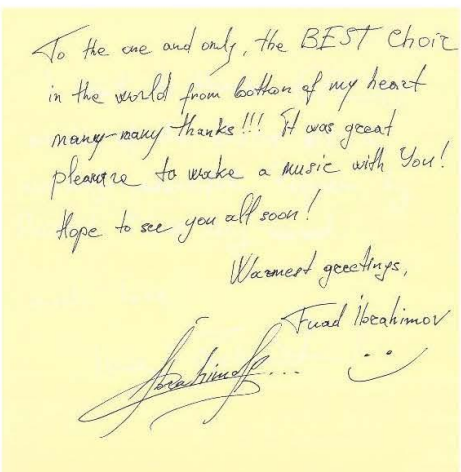 To the one and only, the BEST Choir
in the world from bottom of my heart
many-many thanks!!! It was great
pleasure to make a music with You!
Hope to see you all soon!
Warmest greetings,
Fuad İbrahimov
Ibrahimoff...